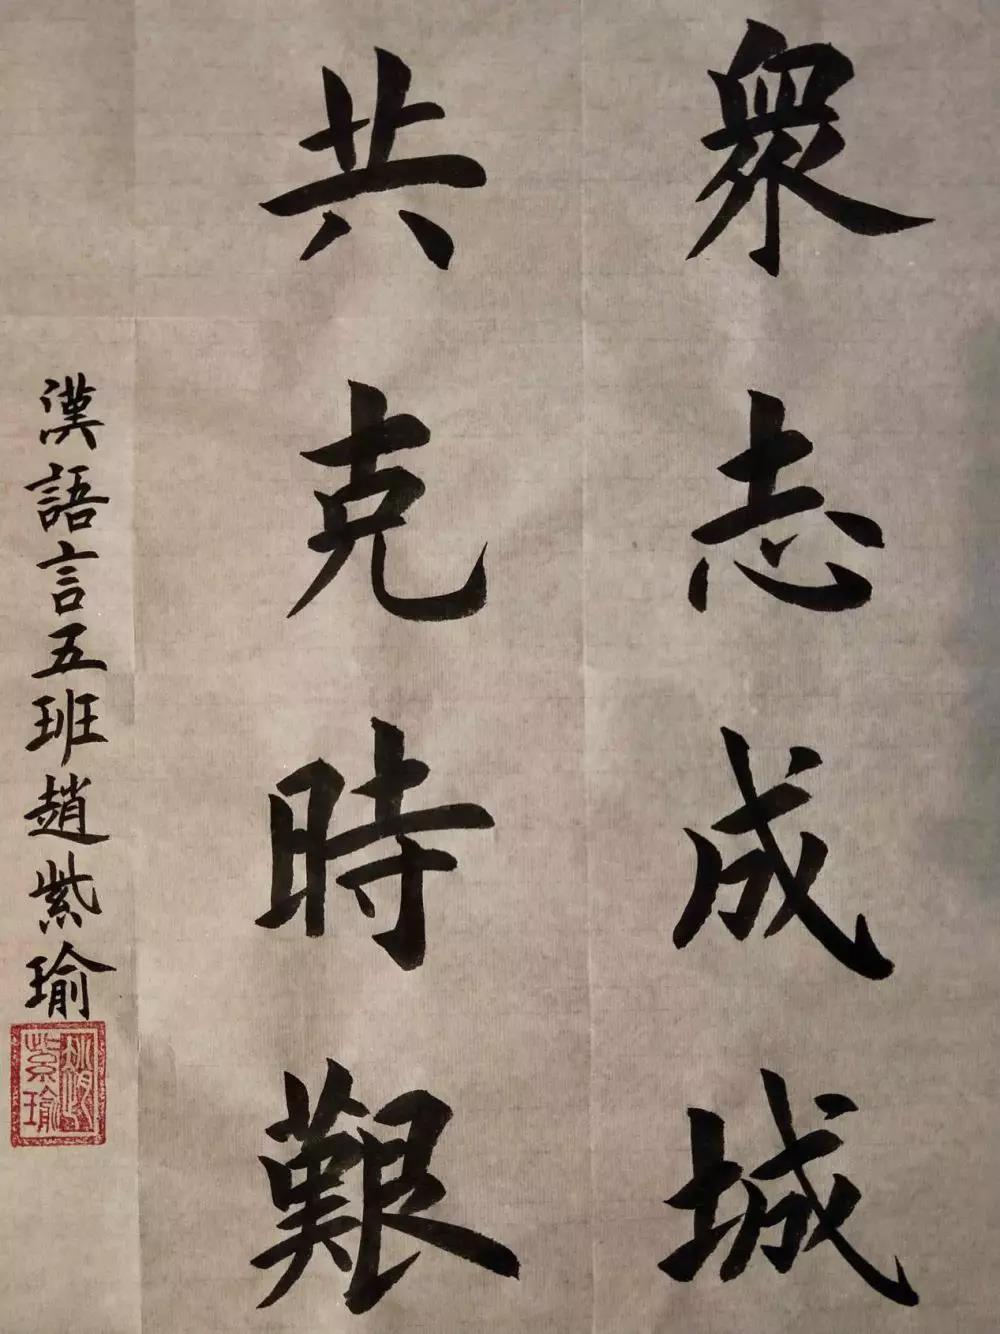 眾志成城
共克時艱
漢語言五班趙紫瑜
趙紫瑜